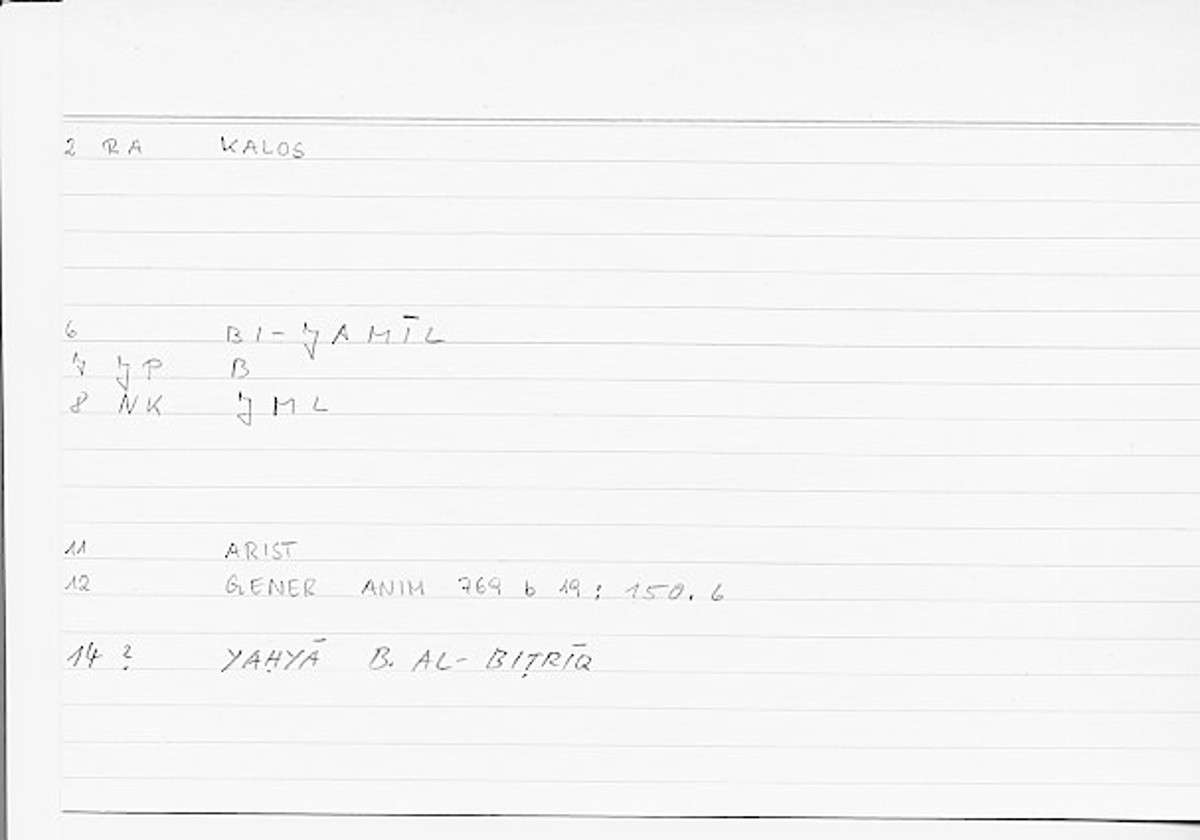 2 RA KALOS
6 BI-ǦAMĪL
7 ǦP B
8 NK ǦML
11 ARIST
12 GENER ANIM 769 b 19 : 150.6
14 ? YAḤYĀ B. AL-BIṬRĪQ